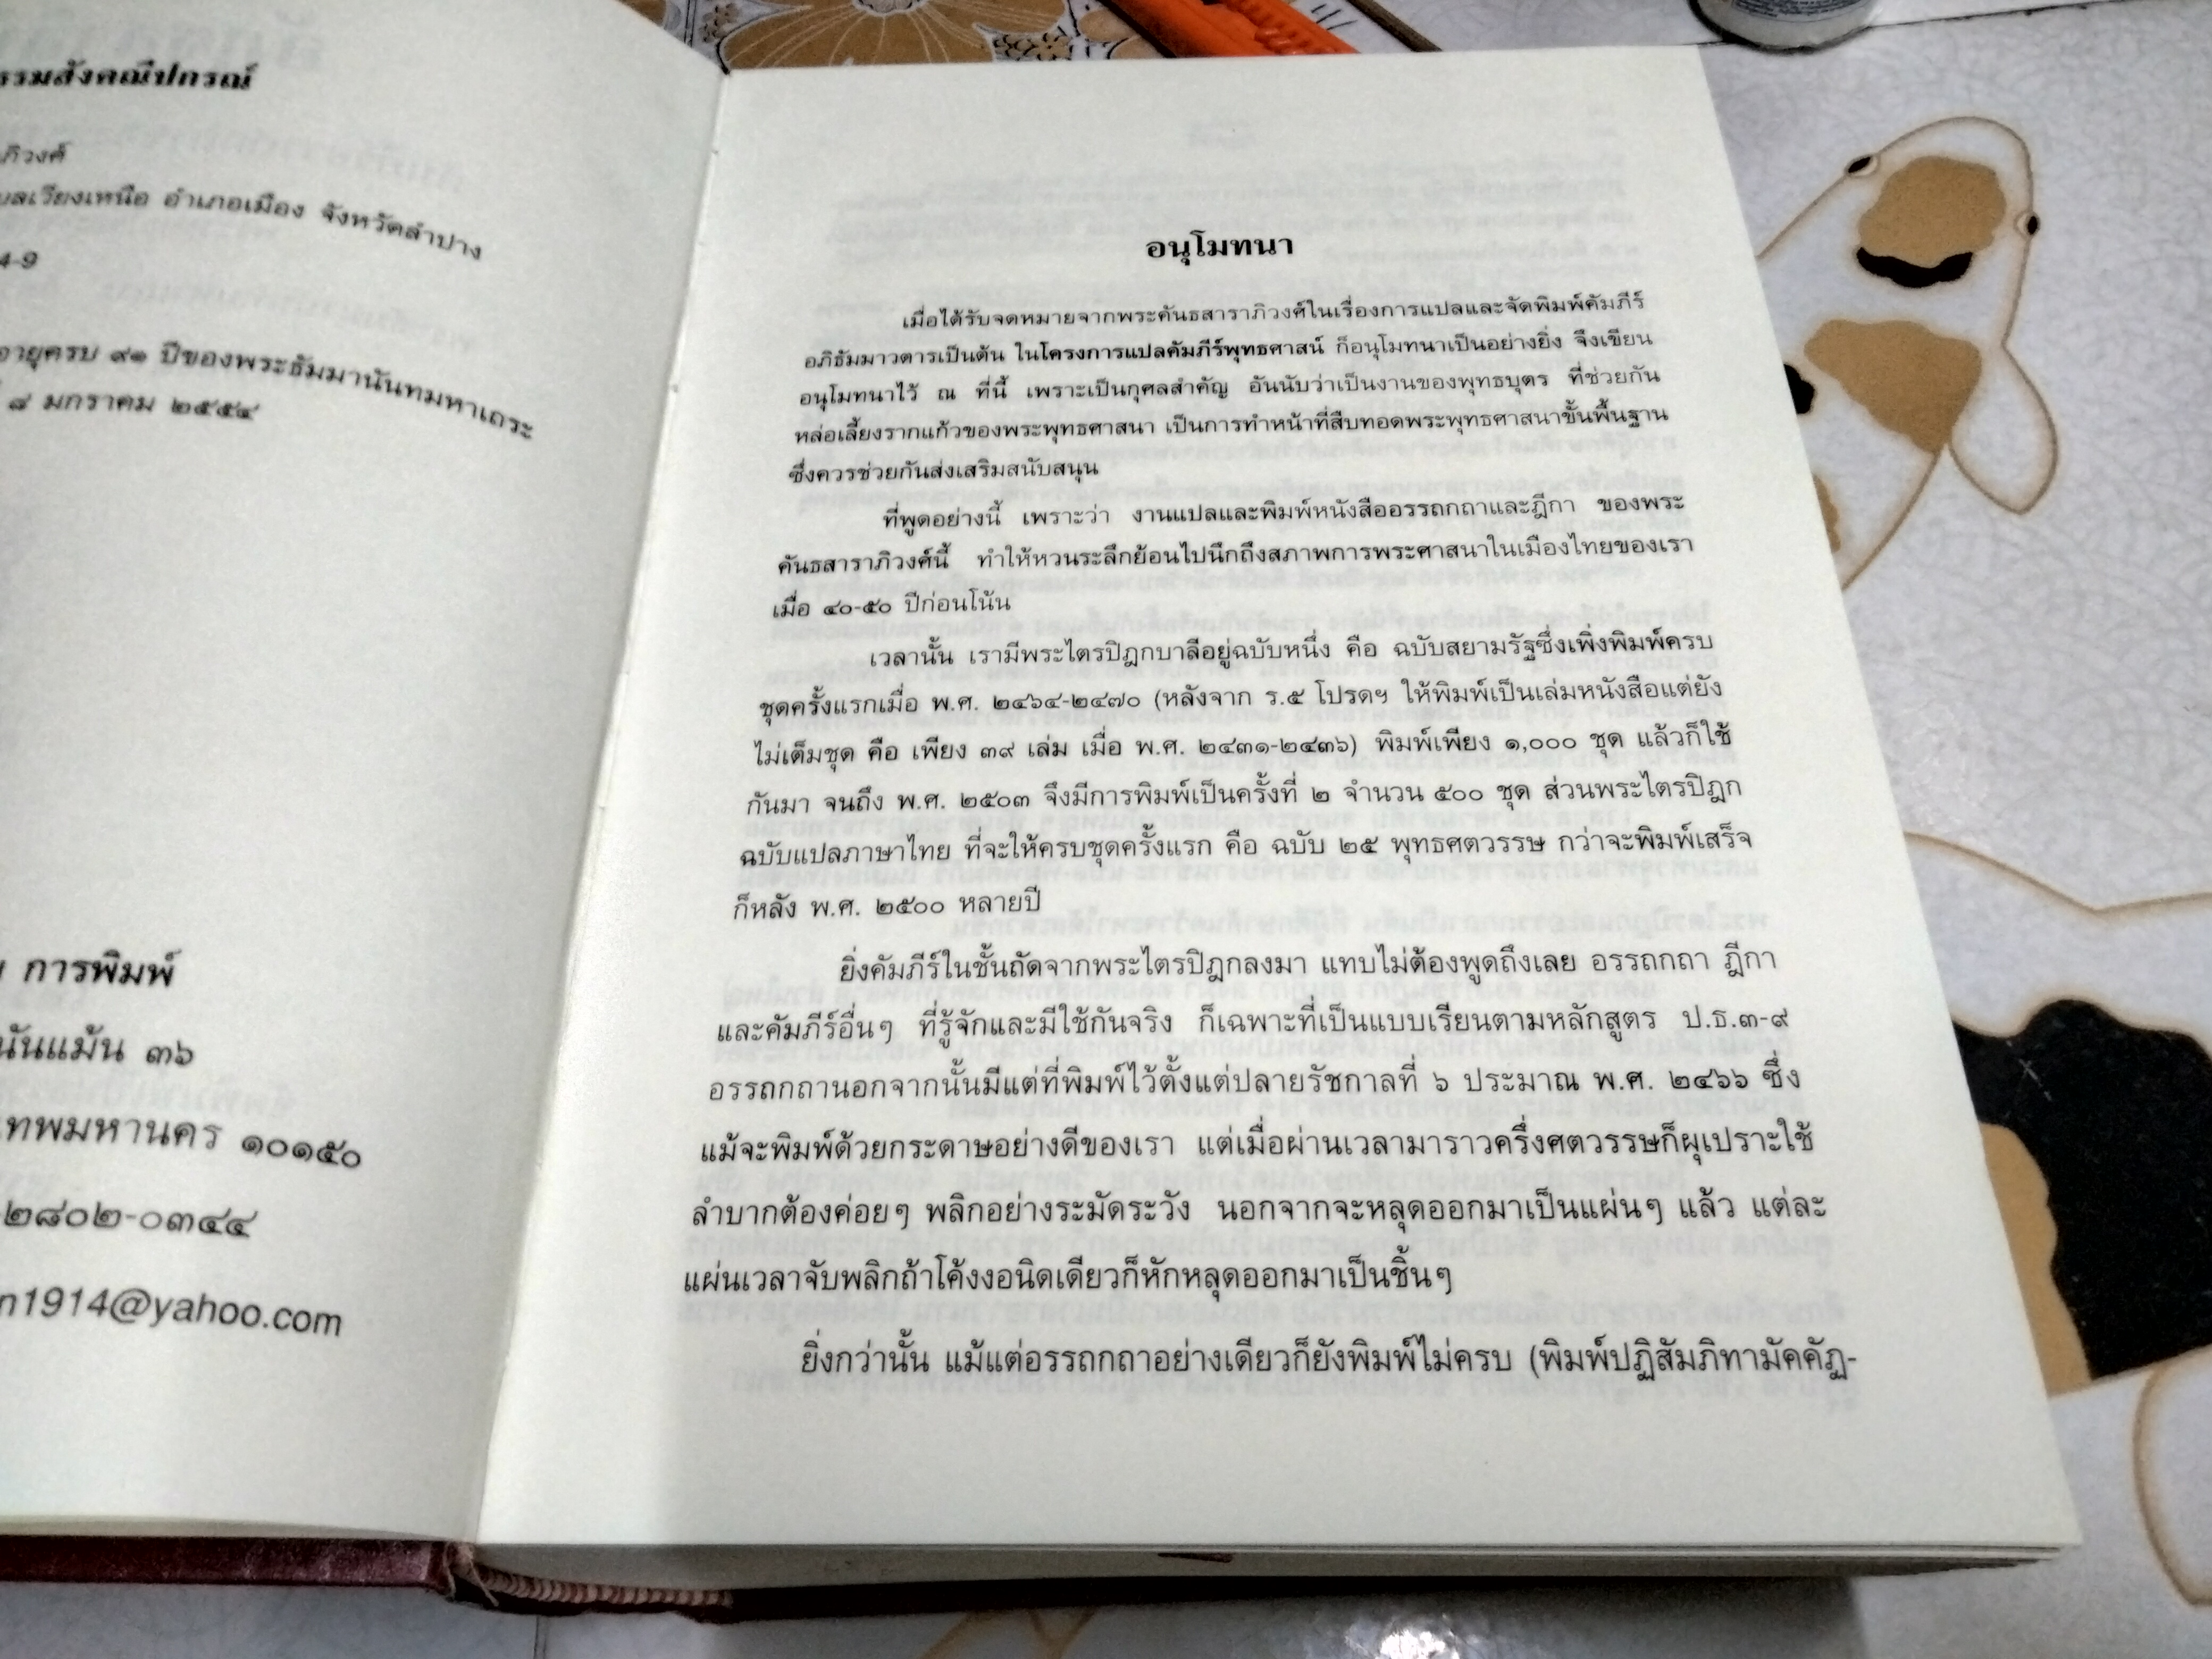 ธรรมสังคณีปกรณ์
ภิวงศ์
เวียงเหนือ อำเภอเมือง จังหวัดลำปาง
4-9
อายุครบ ๙๑ ปีของพระธัมมานันทมหาเถระ
๘ มกราคม ๒๕๕๔
การพิมพ์
๓๖
๑๐๑๕๐
๒๘๐๒-๐๓๔๔
n1914@yahoo.com
อนุโมทนา
เมื่อได้รับจดหมายจากพระคันธสาราภิวงศ์ในเรื่องการแปลและจัดพิมพ์คัมภีร์
อภิธัมมาวตารเป็นต้น ในโครงการแปลคัมภีร์พุทธศาสน์ ก็อนุโมทนาเป็นอย่างยิ่ง จึงเขียน
อนุโมทนาไว้ ณ ที่นี้ เพราะเป็นกุศลสำคัญ อันนับว่าเป็นงานของพุทธบุตร ที่ช่วยกัน
หล่อเลี้ยงรากแก้วของพระพุทธศาสนา เป็นการทำหน้าที่สืบทอดพระพุทธศาสนาขั้นพื้นฐาน
ซึ่งควรช่วยกันส่งเสริมสนับสนุน
ที่พูดอย่างนี้ เพราะว่า งานแปลและพิมพ์หนังสืออรรถกถาและฎีกา ของพระ
คันธสาราภิวงศ์นี้ ทำให้หวนระลึกย้อนไปนึกถึงสภาพการพระศาสนาในเมืองไทยของเรา
เมื่อ ๔๐-๕๐ ปีก่อนโน้น
เวลานั้น เรามีพระไตรปิฎกบาลีอยู่ฉบับหนึ่ง คือ ฉบับสยามรัฐซึ่งเพิ่งพิมพ์ครบ
ชุดครั้งแรกเมื่อ พ.ศ. ๒๔๖๔-๒๔๗๐ (หลังจาก ร.๕ โปรดฯ ให้พิมพ์เป็นเล่มหนังสือแต่ยัง
ไม่เต็มชุด คือ เพียง ๓๙ เล่ม เมื่อ พ.ศ. ๒๔๓๑-๒๔๓๖) พิมพ์เพียง ๑,๐๐๐ ชุด แล้วก็ใช้
กันมา จนถึง พ.ศ. ๒๕๐๓ จึงมีการพิมพ์เป็นครั้งที่ ๒ จำนวน ๕๐๐ ชุด ส่วนพระไตรปิฎก
ฉบับแปลภาษาไทย ที่จะให้ครบชุดครั้งแรก คือ ฉบับ ๒๕ พุทธศตวรรษ กว่าจะพิมพ์เสร็จ
ก็หลัง พ.ศ. ๒๕๐๐ หลายปี
ยิ่งคัมภีร์ในชั้นถัดจากพระไตรปิฎกลงมา แทบไม่ต้องพูดถึงเลย อรรถกถา ฎีกา
และคัมภีร์อื่นๆ ที่รู้จักและมีใช้กันจริง ก็เฉพาะที่เป็นแบบเรียนตามหลักสูตร ป.ธ.๓-๙
อรรถกถานอกจากนั้นมีแต่ที่พิมพ์ไว้ตั้งแต่ปลายรัชกาลที่ ๖ ประมาณ พ.ศ. ๒๔๖๖ ซึ่ง
แม้จะพิมพ์ด้วยกระดาษอย่างดีของเรา แต่เมื่อผ่านเวลามาราวครึ่งศตวรรษก็ผุเปราะใช้
ลำบากต้องค่อยๆ พลิกอย่างระมัดระวัง นอกจากจะหลุดออกมาเป็นแผ่นๆ แล้ว แต่ละ
แผ่นเวลาจับพลิกถ้าโค้งงอนิดเดียวก็หักหลุดออกมาเป็นชิ้นๆ
ยิ่งกว่านั้น แม้แต่อรรถกถาอย่างเดียวก็ยังพิมพ์ไม่ครบ (พิมพ์ปฏิสัมภิทามัคคัฏ-